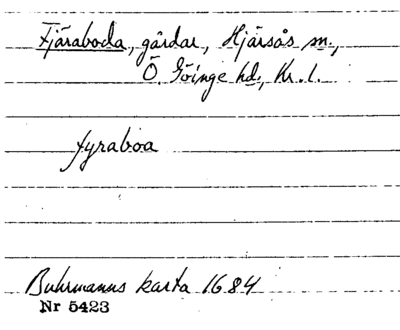 Fjäraboda, gårdar, Hjärsås sn.,
Ö. Göinge hd., Kr. l.
fyraboa
Buhrmanns karta 1684
Nr 5423